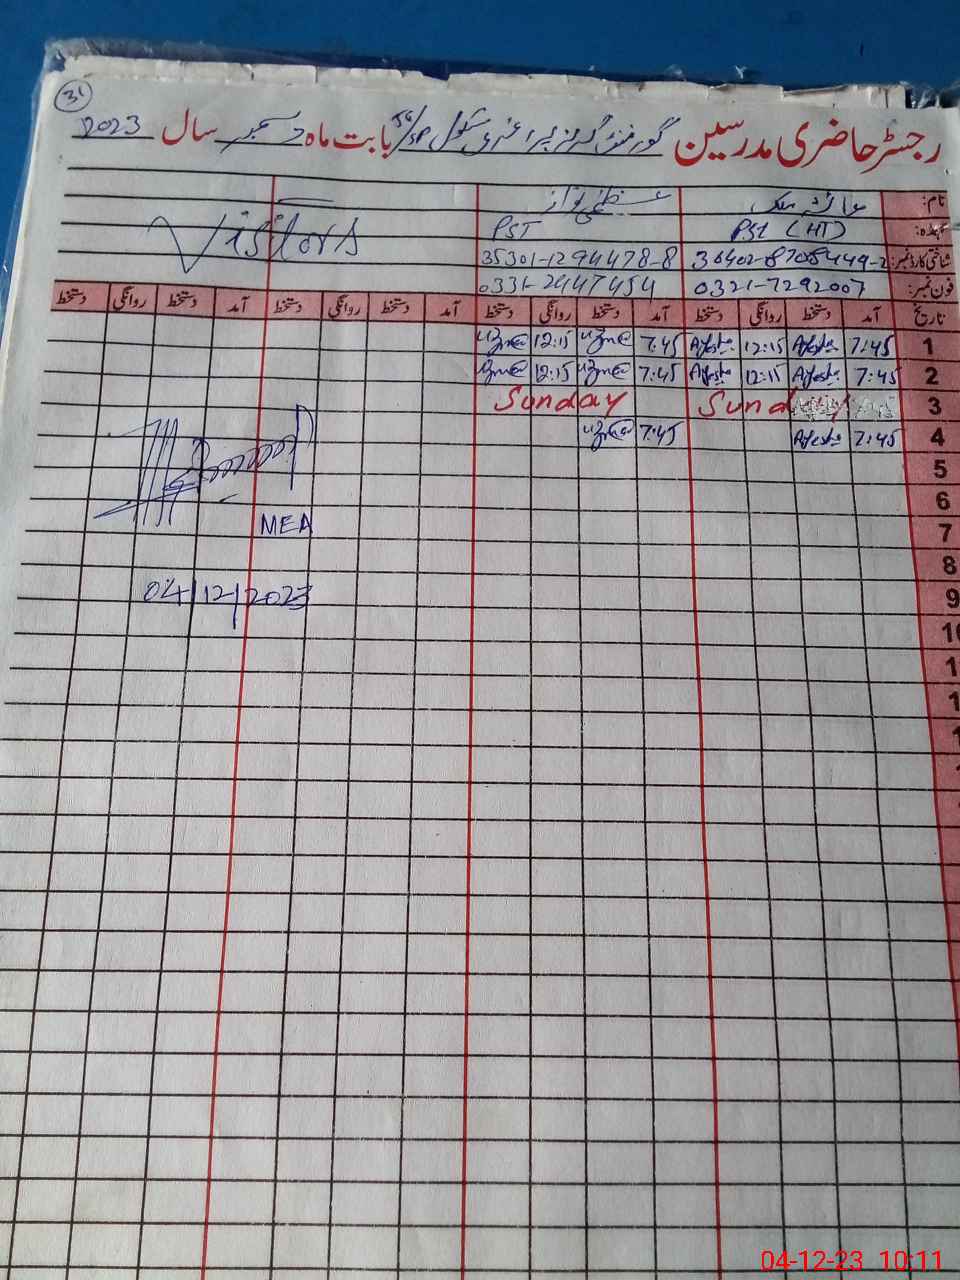 31
رجسٹر حاضری مدرسین گورنمنٹ گرلز پرائمری سکول 56/SP بابت ماہ دسمبر سال 2023
نام: عائشہ ملک عظمیٰ نواز
عہدہ: PST (HT) PST Visitors
شناختی کارڈ نمبر: 36402-8708449-2 35301-1294478-8
فون نمبر: 0321-7292007 0331-7447454
تاریخ آمد دستخط روانگی دستخط آمد دستخط روانگی دستخط آمد دستخط روانگی دستخط آمد دستخط روانگی دستخط
1 7:45 Ayesha 12:15 Ayesha 7:45 Uzma 12:15 Uzma
2 7:45 Ayesha 12:15 Ayesha 7:45 Uzma 12:15 Uzma
3 Sunday Sunday
4 7:45 Ayesha 7:45 Uzma
5
6
7 MEA
8
9 04/12/2023
10
04-12-23 10:11